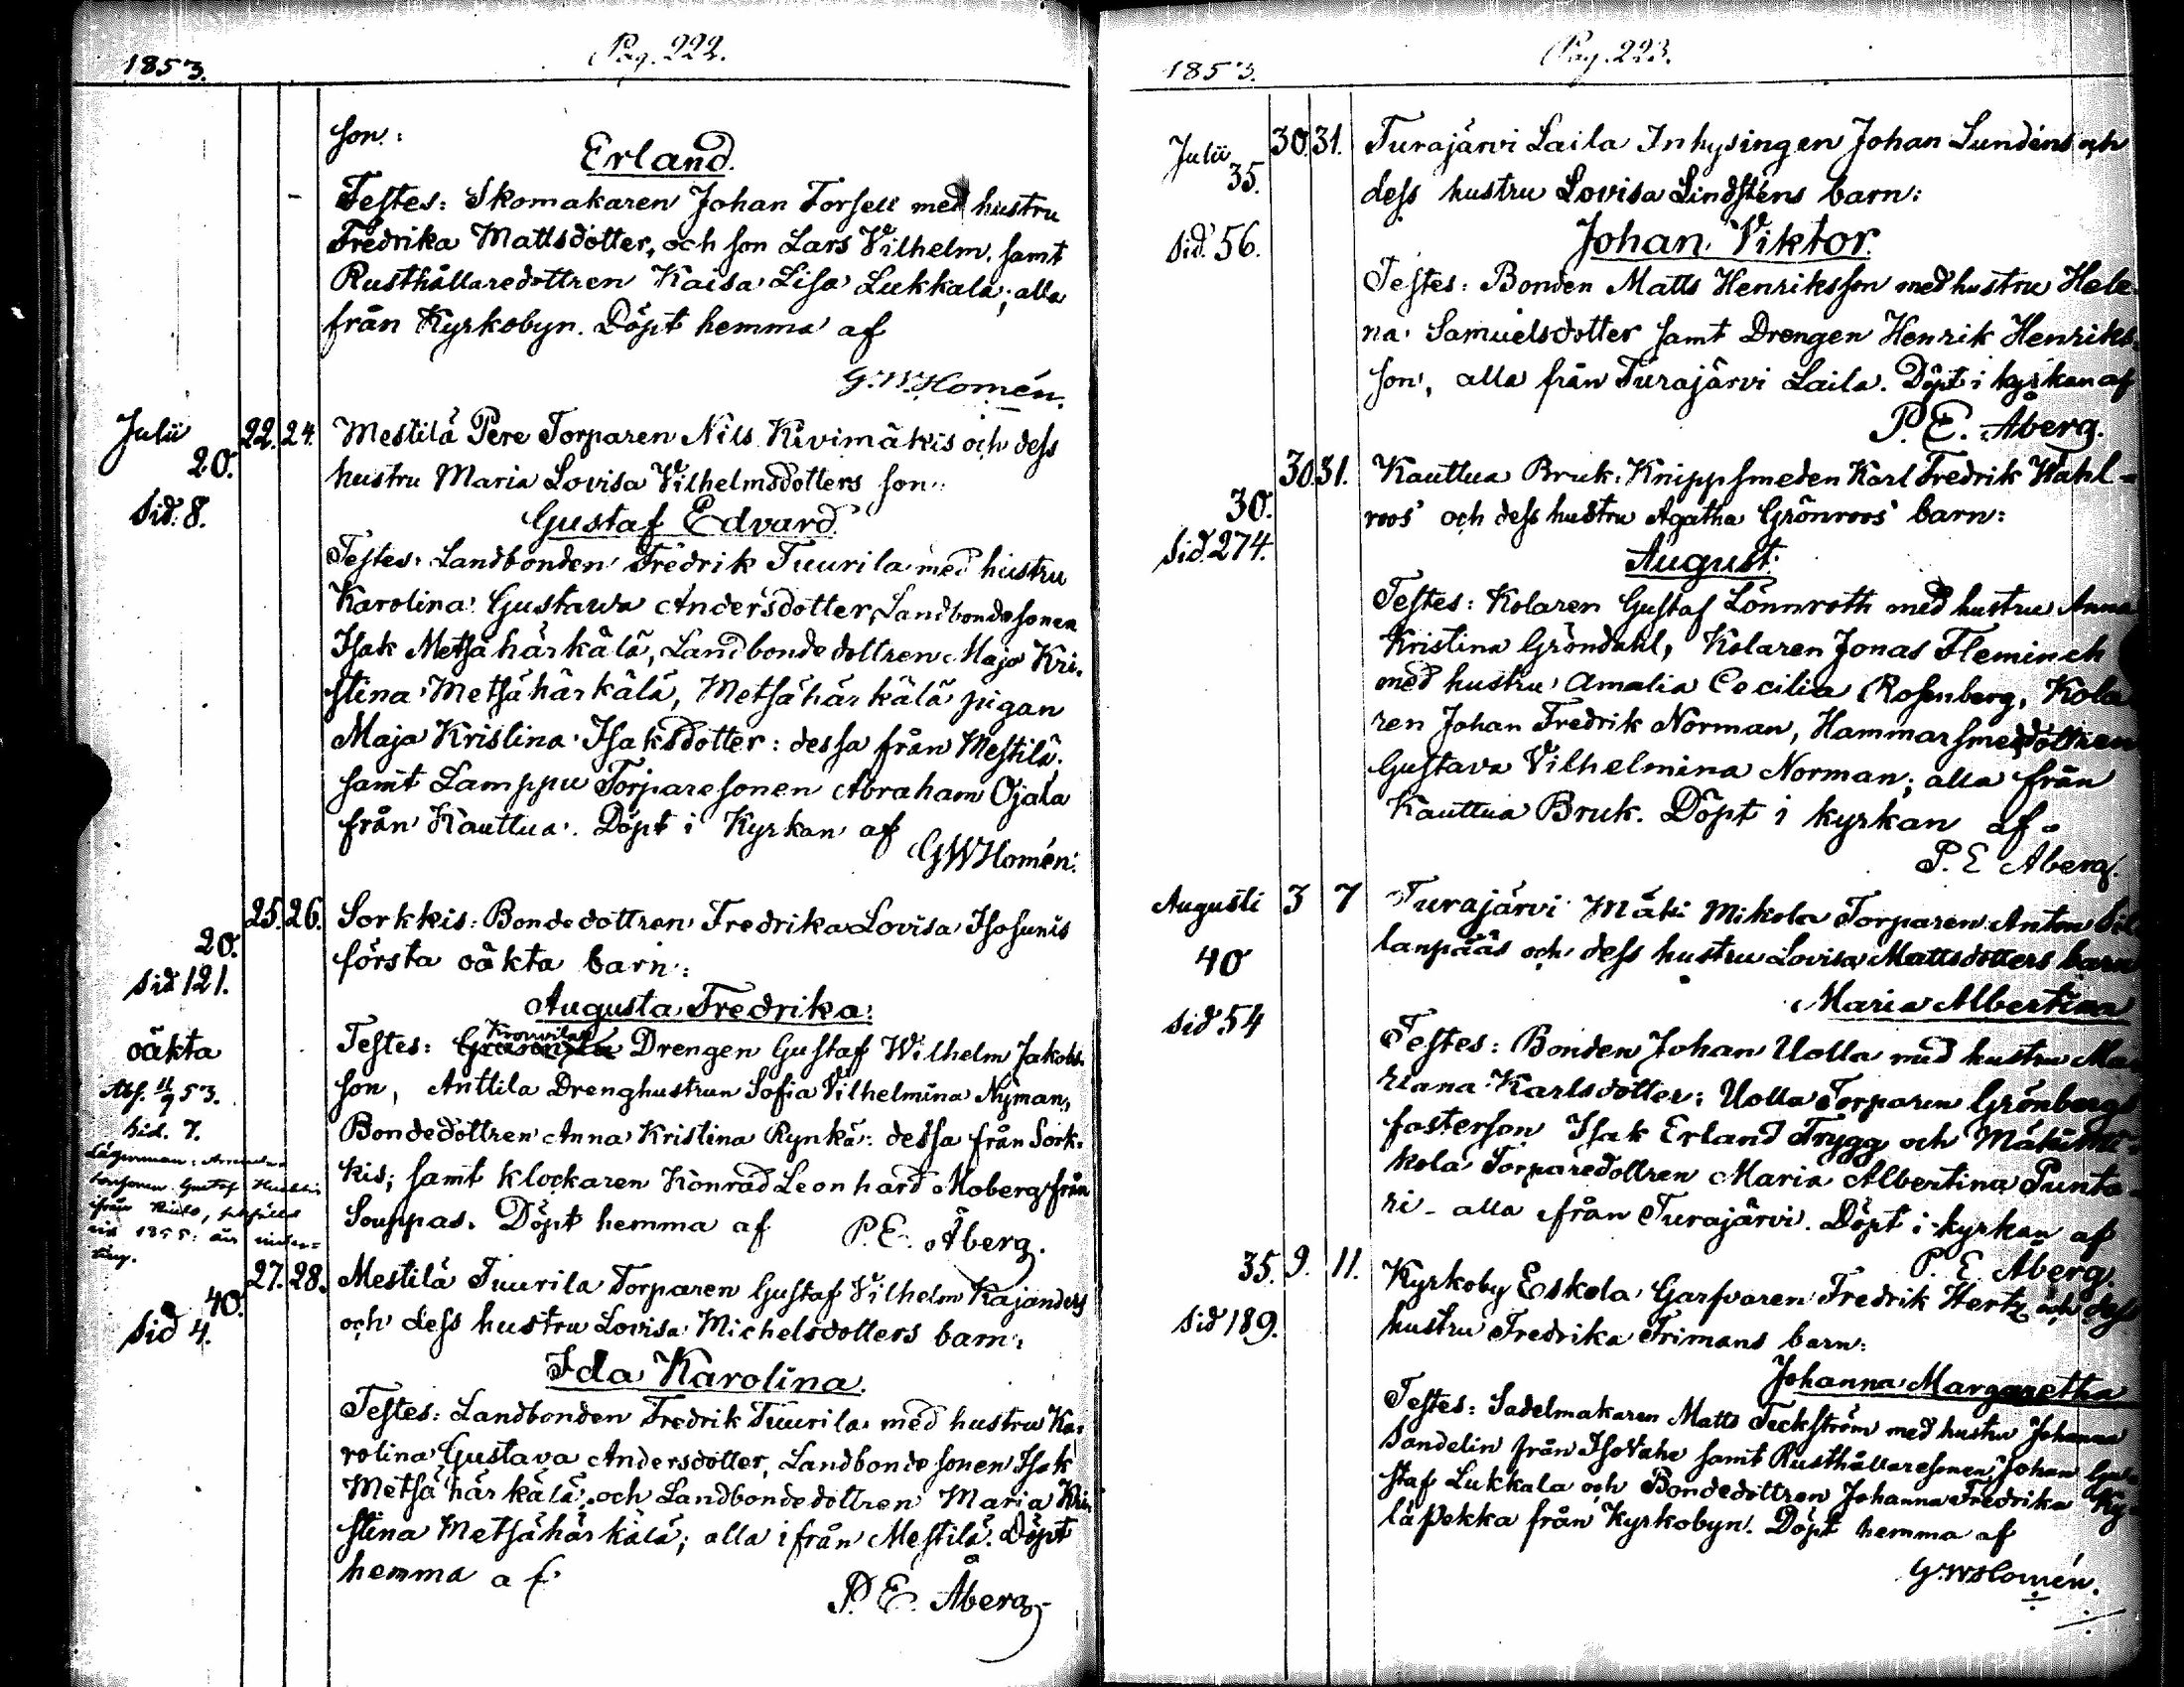 Pag. 222.
1853.
son:
Erland.
Testes: Skomakaren Johan Forsell med hustru
Fredrika Mattsdotter, och son Lars Vilhelm, samt
Rusthållaredottren Kaisa Lisa Lukkala; alla
från Kyrkobyn. Döpt hemma af
G.W.Homén.
Julii 22. 24. Mestilä Pere Torparen Nils Kivimäkis och dess
20. hustru Maria Lovisa Vilhelmsdotters son:
Sid. 8. Gustaf Edvard.
Testes: Landbonden Fredrik Tuurila med hustru
Karolina Gustawa Andersdotter, Landbondesonen
Isak Metsähärkälä, Landbondedottren Maja Kri-
stina Metsähärkälä, Metsähärkälä pigan
Maja Kristina Isaksdotter: dessa från Mestilä.
samt Lamppu Torparesonen Abraham Ojala
från Kauttua. Döpt i Kyrkan af
GWHomén.
25. 26. Sorkkis: Bondedottren Fredrika Lovisa Isosunis
20. första oäkta barn:
Sid 121. Augusta Fredrika:
oäkta Testes: Drengen Gustaf Wilhelm Jakobs-
son, Anttila Drenghustrun Sofia Vilhelmina Nyman,
Abs. 11/9 53. Bondedottren Anna Kristina Rynkä: dessa från Sork-
Sid. 7. kis; samt klockaren Konrad Leonhard Moberg från
Souppas. Döpt hemma af P.E. Åberg.
Gustaf
1855:
27. 28. Mestilä Tuurila Torparen Gustaf Vilhelm Kajanders
40. och dess hustru Lovisa Michelsdotters barn:
Sid 4. Ida Karolina.
Testes: Landbonden Fredrik Tuurila med hustru Ka-
rolina Gustava Andersdotter, Landbondesonen Isak
Metsähärkälä och Landbondedottren Maria Kri-
stina Metsähärkälä; alla ifrån Mestilä. Döpt
hemma af
P. E. Åberg
Pag. 223.
1853.
Julii 30. 31. Turajärvi Laila Inhysingen Johan Lundéns och
35. dess hustru Lovisa Lindsténs barn:
Sid. 56. Johan Viktor.
Testes: Bonden Matts Henriksson med hustru Hele-
na Samuelsdotter samt Drengen Henrik Henriks-
son, alla från Turajärvi Laila. Döpt i kyrkan af
P. E. Åberg.
30. 31. Kauttua Bruk: Knippsmeden Karl Fredrik Wahl-
30. roos och dess hustru Agatha Grönroos barn:
Sid. 274. August:
Testes: Kolaren Gustaf Lönnroth med hustru Anna
Kristina Gröndahl, Kolaren Jonas Fleminch
med hustru Amalia Cecilia Rosenberg, Kola
ren Johan Fredrik Norman, Hammarsmedsdottren
Gustava Vilhelmina Norman; alla från
Kauttua Bruk. Döpt i kyrkan af
P. E Åberg.
Augusti 3 7 Turajärvi Mäki Mikola Torparen Anton Sil
40 lanpääs och dess hustru Lovisa Mattsdotters barn
Sid 54 Maria Albertina
Testes: Bonden Johan Uolla med hustru Ma
riana Karlsdotter: Uolla Torparen Grönbergs
fosterson Isak Erland Trygg och Mäki Mi-
kola Torparedottren Maria Albertina Punta-
ri - alla från Turajärvi. Döpt i kyrkan af
P. E. Åberg.
35. 9. 11. Kyrkoby Eskola Garfvaren Fredrik Hertz och dess
Sid 189. hustru Fredrika Frimans barn:
Johanna Margaretha
Testes: Sadelmakaren Matts Teckström med hustru Johanna
Sandelin från IsoVahe samt Rusthållaresonen Johan Gu-
staf Lukkala och Bondedottren Johanna Fredrika Ky-
läpekka från Kyrkobyn. Döpt hemma af
G.WHomén.